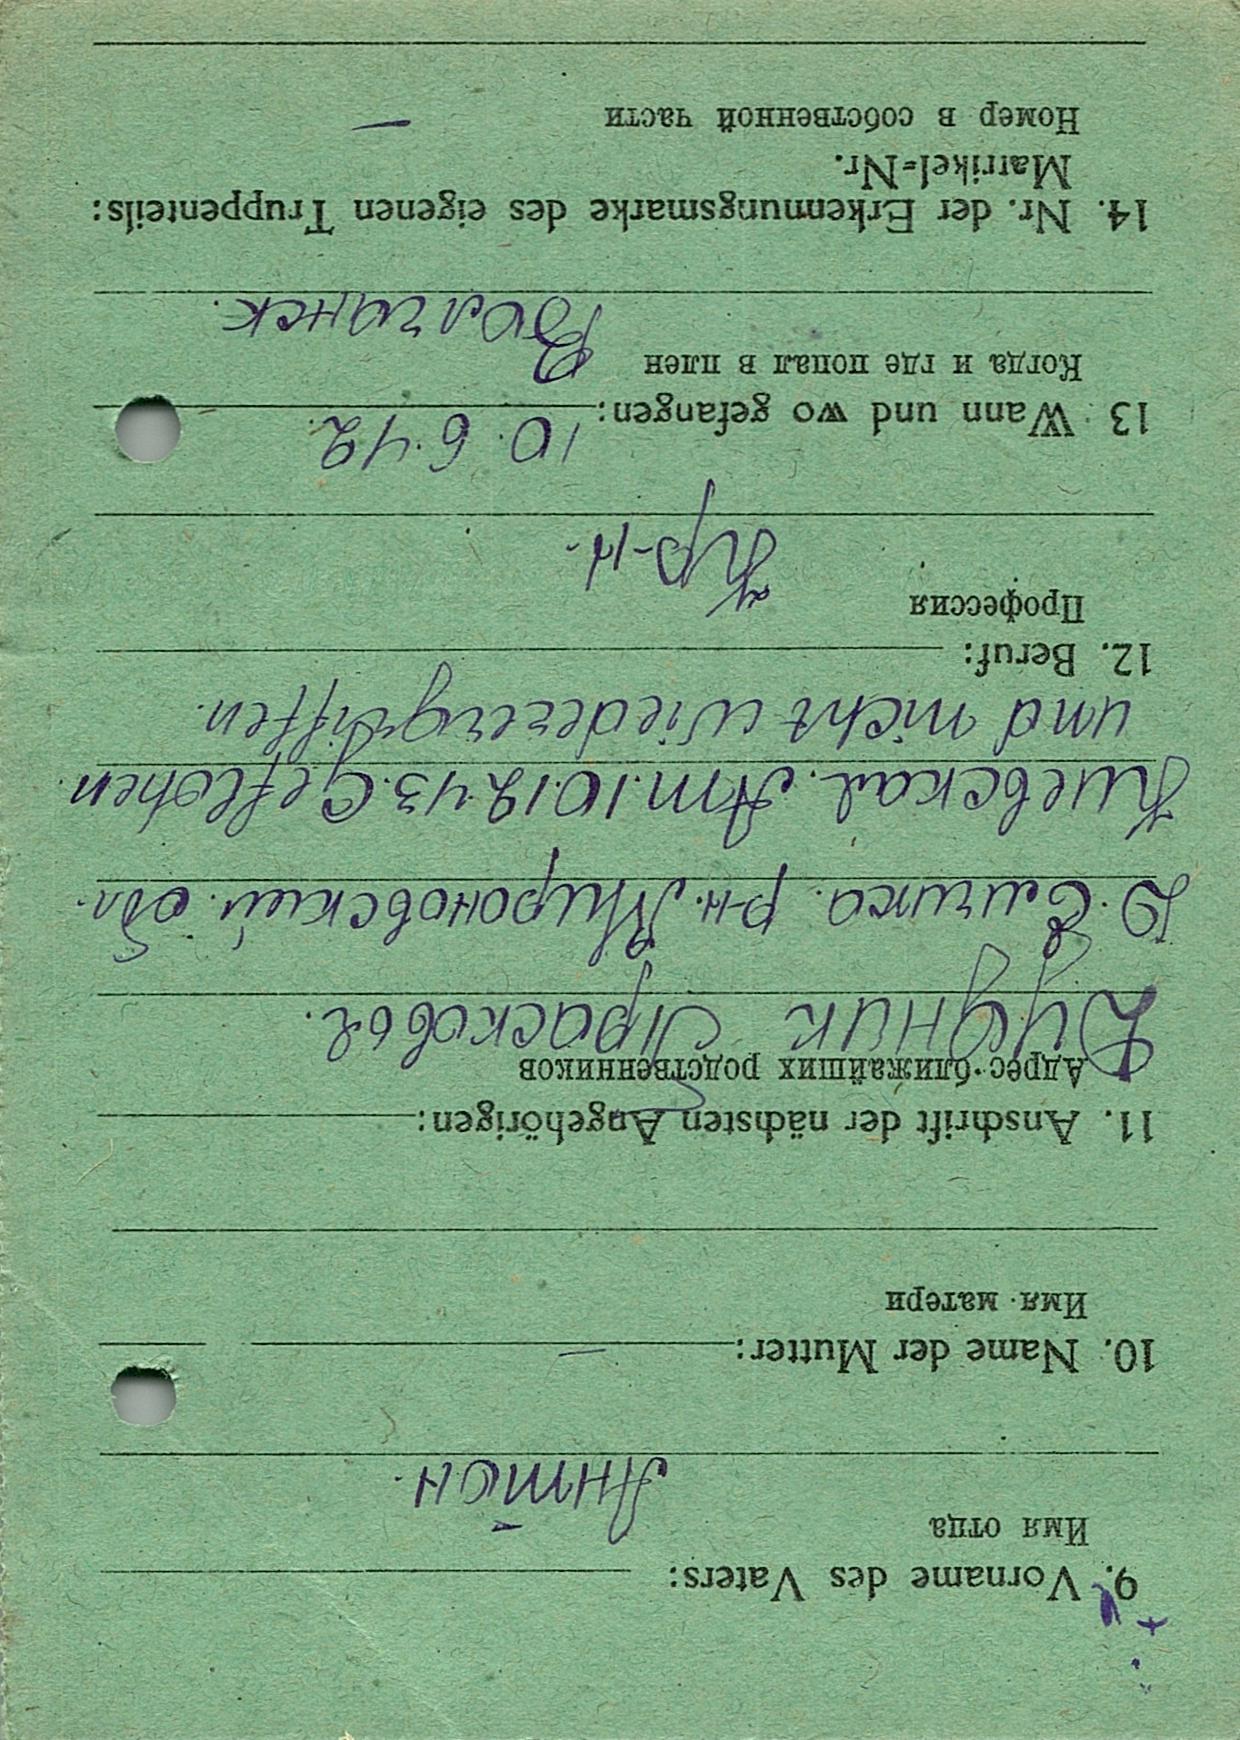 9. Vorname des Vaters:
Имя отца
Антон.
10. Name der Mutter: —
Имя матери
11. Anschrift der nächsten Angehörigen:
Адрес ближайших родственников
Дудник Прасковья.
р-н. Мироновский. обл.
Киевская. Am. 10.12.43. Geflohen.
und nicht wiederergriffen.
12. Beruf:
Профессия
Кр-н.
13 Wann und wo gefangen: 10.6.42.
Когда и где попал в плен
Волчанск.
14. Nr. der Erkennungsmarke des eigenen Truppenteils:
Matrikel-Nr.
Номер в собственной части —